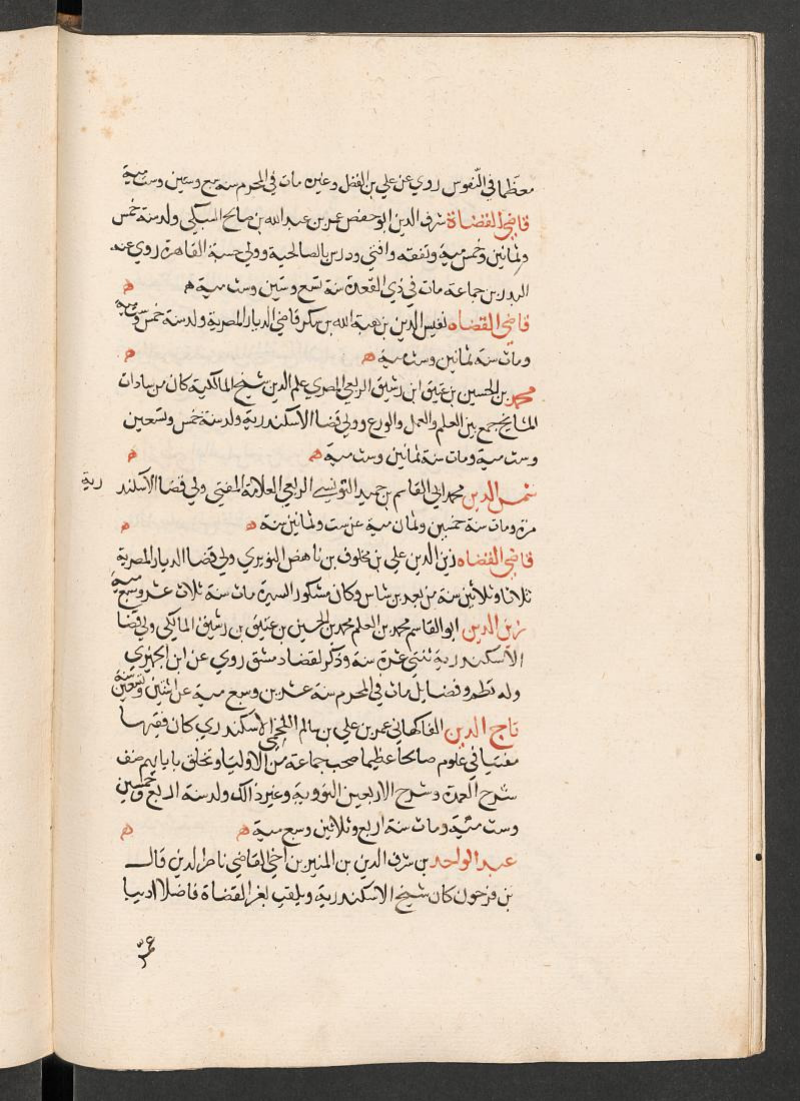 معظما في النفوس روي عن علي بن الفضل وغيره مات في المحرم سنة سبع وستين وستمية
قاضي القضاة شرف الدين ابو حفص عمر بن عبد الله بن صالح السبكي ولد سنة خمس
وثمانين وخمس مية وتفقه وافتي ودرس بالصالحية وولي حسبة القاهرة روي عنه
البدر بن جماعة مات في ذي القعدة سنة تسع وستين وست مية ه ه
قاضي القضاه نفيس الدين بن هبة الله بن شكر قاضي الديار المصرية ولد سنة خمس وستمية
ومات سنة ثمانين وست مية ه ه
محمد بن الحسين بن عتيق ابن رشيق الربعي المصري علم الدين شيخ المالكية كان من سادات
المشايخ جمع بين العلم والعمل والورع وولي قضا الاسكندرية ولد سنة خمس وتسعين
وست مية ومات سنة ثمانين وست مية ه ه
شمس الدين محمد ابي القاسم بن حميد التونسي الربعي العلامة المفتي ولي قضا الاسكند رية
مرة ومات سنة خمسين وثمان مية عن ست وثمانين سنة ه ه
قاضي القضاه زين الدين علي بن مخلوف بن ناهض النويري ولي قضا الديار المصرية
ثلاثا وثلاثين سنة من بعد بن شاس وكان مشكور السيرة مات سنة ثلاث عشر وسبع مية
زين الدين ابو القاسم محمد بن العلم محمد بن الحسين بن عتيق بن رشيق المالكي ولي قضا
الاسكندرية ثنتي عشرة سنة وذكر لقضا دمشق روي عن ابن الجميزي
وله نظم وفضايل مات في المحرم سنة عشرين وسبع مية عن اثنين وتسعين سنة
تاج الدين الفاكهاني عمر بن علي بن سالم اللخمي الاسكندري كان فقيها
مفتيا في علوم صالحا عظيما صحب جماعة من الاوليا وتخلق بابابهم صنف
شرح العمدة وشرح الاربعين النووية وغير ذالك ولد سنة اربع وخمسين
وست مئية ومات سنة اربع وثلاثين وسبع مية ه ه
عبد الواحد بن شرف الدين بن المنير بن اخي القاضي ناصر الدين قال
بن فرحون كان شيخ الاسكندرية ويلقب بعز القضاة فاضلا اديبا